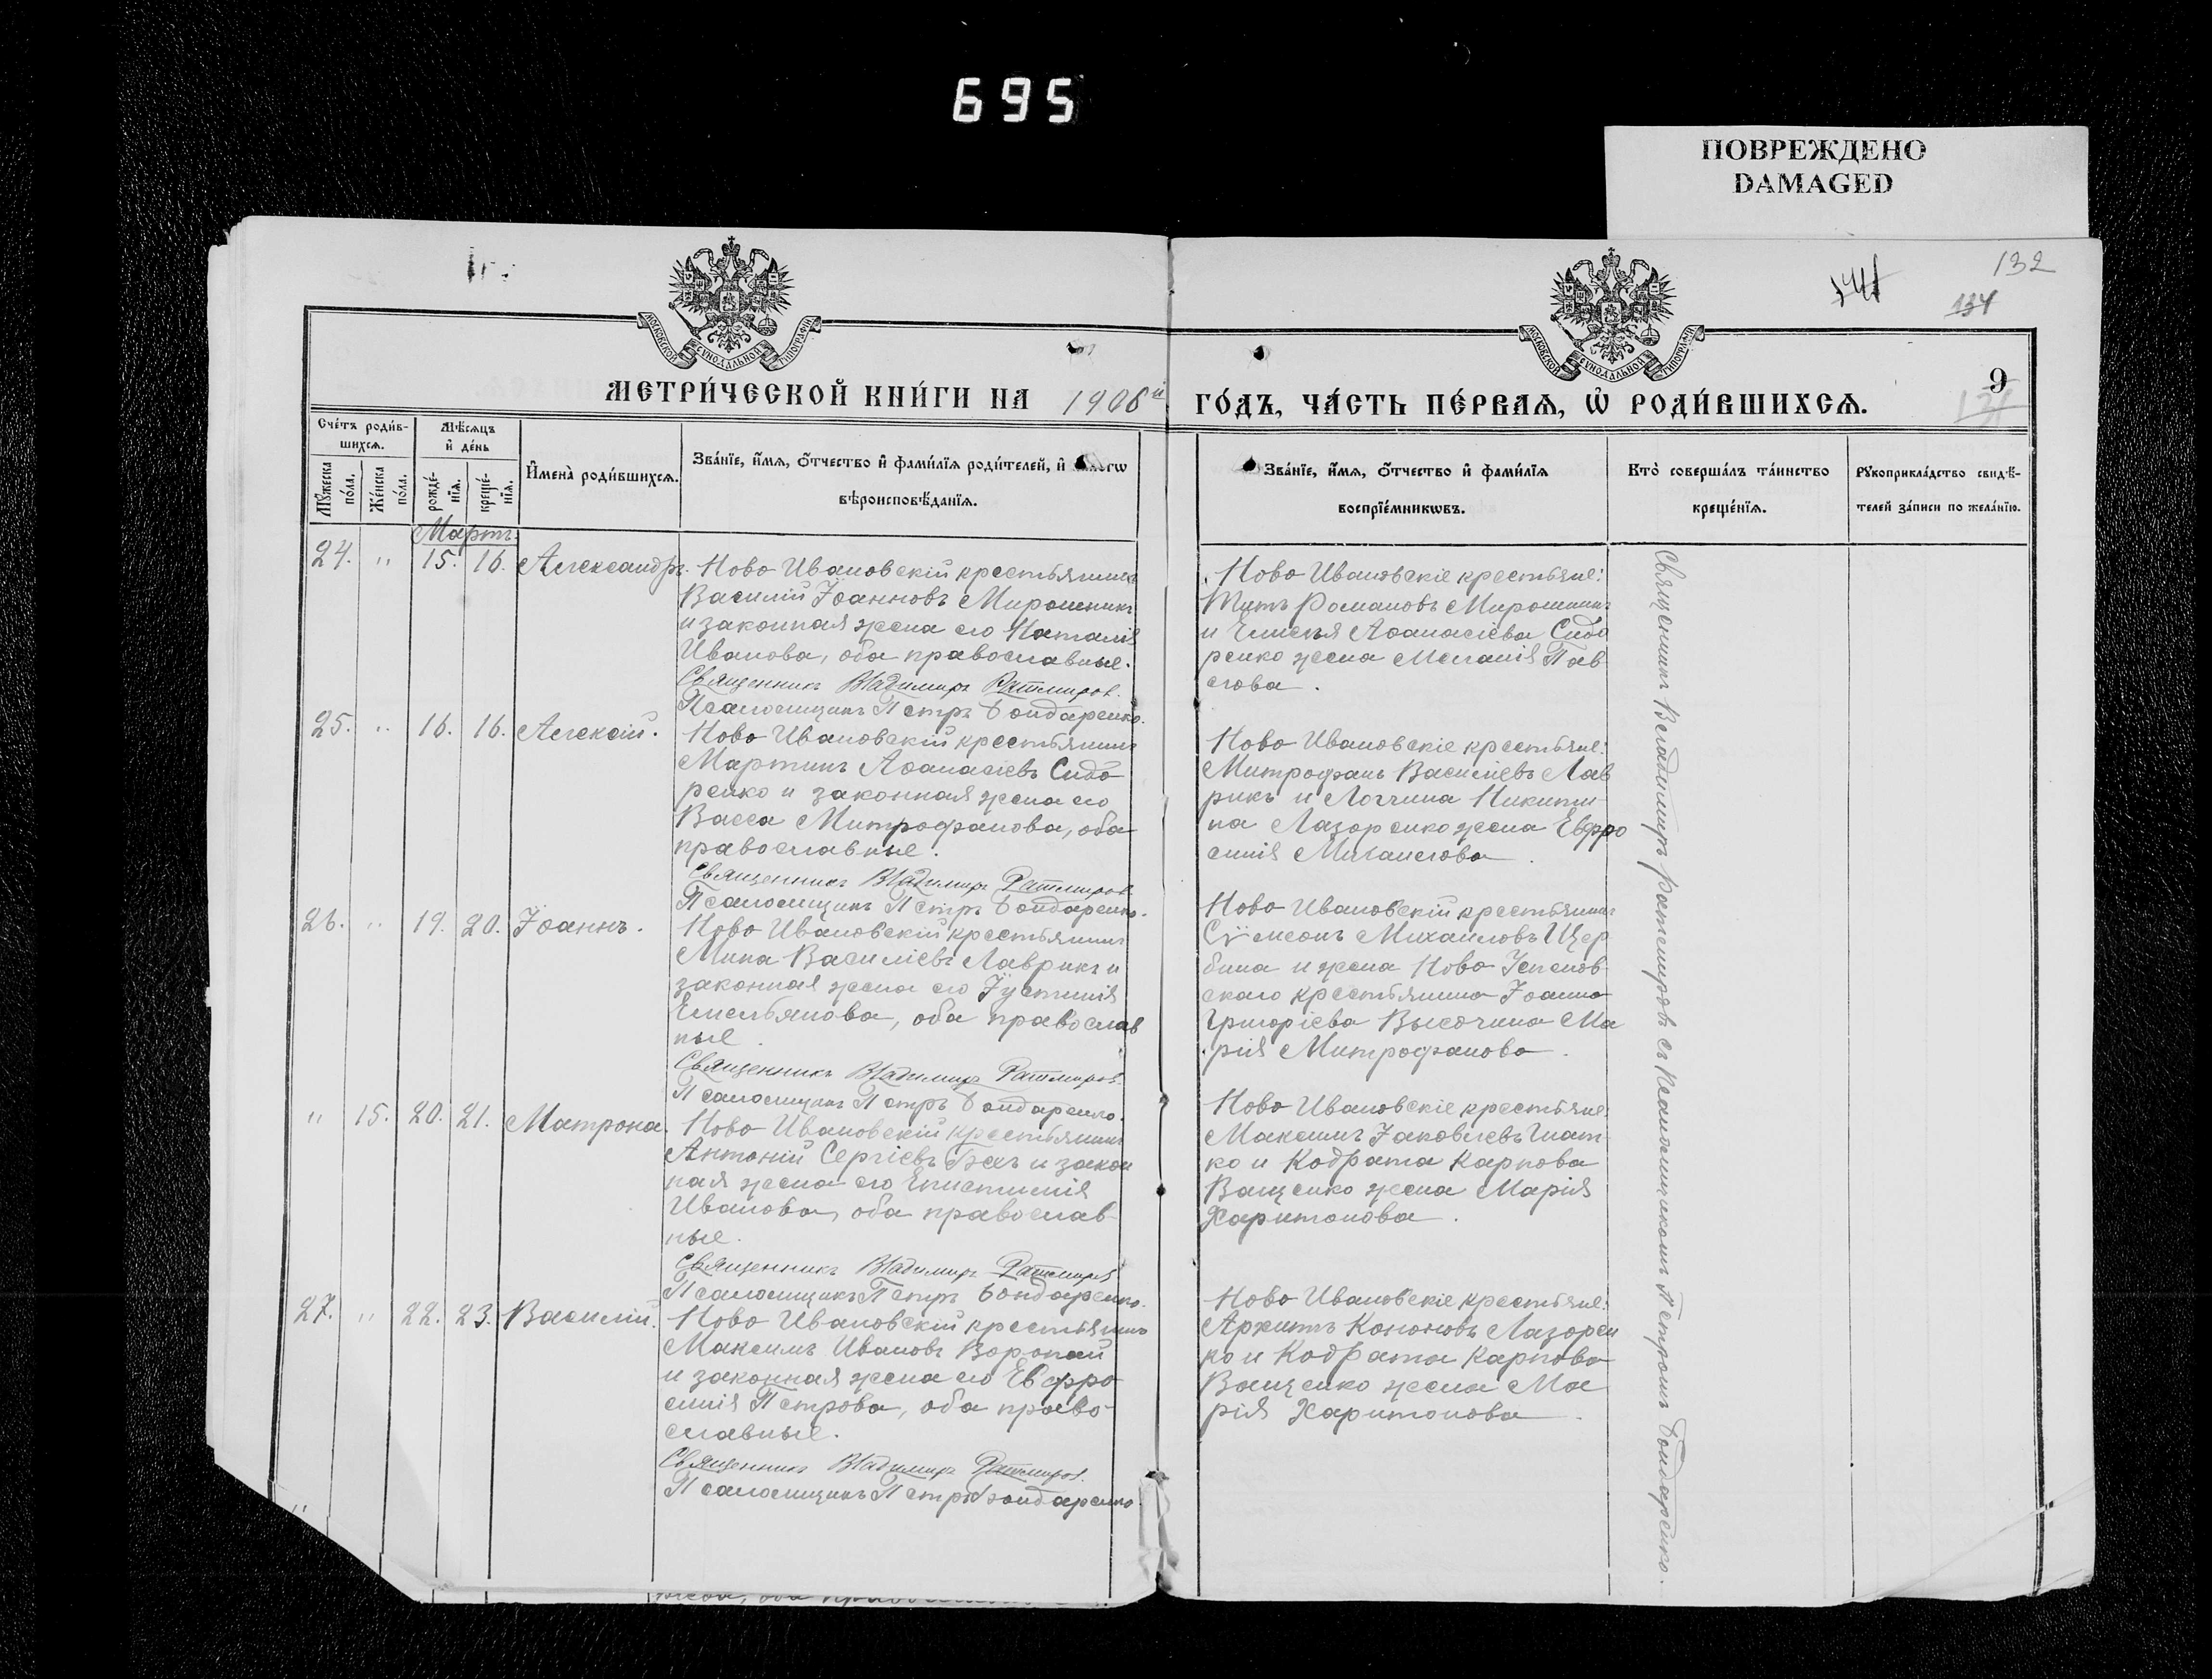 695
ПОВРЕЖДЕНО
DAMAGED
132
134
МОСКОВСКОЙ СѴНОДАЛЬНОЙ ТИПОГРАФІИ
МОСКОВСКОЙ СѴНОДАЛЬНОЙ ТИПОГРАФІИ
9
МЕТРИ́ЧЕСКОЙ КНИ́ГИ НА 1906й ГО́ДЪ, ЧА́СТЬ ПЕ́РВАѦ, Ѡ҆ РОДИ́ВШИХСѦ.
Сче́тъ роди́в-
шихсѧ.
Мѣ́сѧцъ
и҆ де́нь
Мꙋ́жеска по́ла.
Же́нска по́ла.
рожде́-
нїѧ.
креще́-
нїѧ.
И҆мена̀ роди́вшихсѧ.
Зва́нїе, и҆́мѧ, ѻ҆́тчество и҆ фами́лїѧ роди́телей, и҆
вѣроисповѣ́данїѧ.
Зва́нїе, и҆́мѧ, ѻ҆́тчество и҆ фами́лїѧ
воспрїе́мникѡвъ.
Кто̀ соверша́лъ та́инство
креще́нїѧ.
Рꙋкоприкла́дство свидѣ́-
телей за́писи по жела́нїю.
Мартъ.
24. " 15. 16. Александръ.
Ново Ивановскій крестьянинъ
Василій Іоанновъ Мирошникъ
и законная жена его Наталія
Иванова, оба православные.
Священникъ Владимиръ Ратмировъ.
Псаломщикъ Петръ Бондаренко.
Ново Ивановскіе крестьяне:
Титъ Романовъ Мирошникъ
и Аѳанасіева Сидо
ренко жена Меланія Пав
лова.
25. " 16. 16. Алексій.
Ново Ивановскій крестьянинъ
Мартинъ Аѳанасіевъ Сидо
ренко и законная жена его
Васса Митрофанова, оба
православные.
Священникъ Владимиръ Ратмировъ
Псаломщикъ Петръ Бондаренко.
Ново Ивановскіе крестьяне:
Митрофанъ Василіевъ Лав
рикъ и Логгина Никити-
на Лазоренко жена Евфро
синія
26. " 19. 20. Іоаннъ.
Ново Ивановскій крестьянинъ
Мина Василіевъ Лаврикъ и
законная жена его Іустинія
Емельянова, оба православ
ные.
Священникъ Владимиръ Ратмировъ.
Псаломщикъ Петръ Бондаренко.
Ново Ивановскій крестьянинъ
Сѵмеонъ Михаиловъ Щер
бина и жена Ново
скаго крестьянина Іоанна
Григоріева Высочина Ма
рія Митрофанова.
" 15. 20. 21. Матрона.
Ново Ивановскій крестьянинъ
Антоній Сергіевъ и закон
ная жена его Епистимія
Иванова, оба православ-
ные.
Священникъ Владимиръ Ратмировъ
Псаломщикъ Петръ Бондаренко.
Ново Ивановскіе крестьяне
Максимъ Іаковлевъ Гнат-
ко и Кодрата Карпова
Ващенко жена Марія
Харитонова.
27. " 22. 23. Василій.
Ново Ивановскій крестьянинъ
Максимъ Ивановъ Воропай
и законная жена его Евфро
синія Петрова, оба право-
славные.
Священникъ Владимиръ Ратмировъ.
Псаломщикъ Петръ Бондаренко.
Ново Ивановскіе крестьяне:
Архипъ Кононовъ Лазорен
ко и Кодрата Карпова
Ващенко жена Ма
рія Харитонова.
Священникъ Владимиръ Ратмировъ съ псаломщикомъ Петромъ Бондаренко.